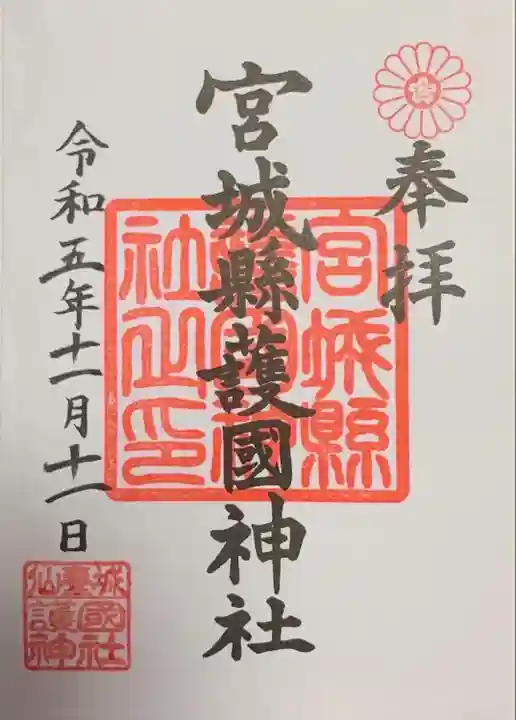 奉拝
宮城縣護國神社
宮城縣護國神社之印
令和五年十一月十一日
仙臺城
護國神社